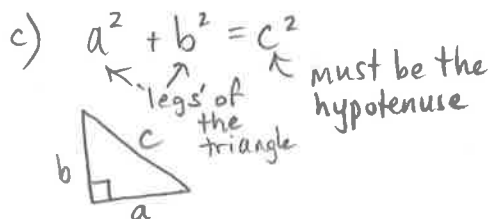 c) a² + b² = c²
'legs' of
the
triangle
must be the
hypotenuse
b
c
a